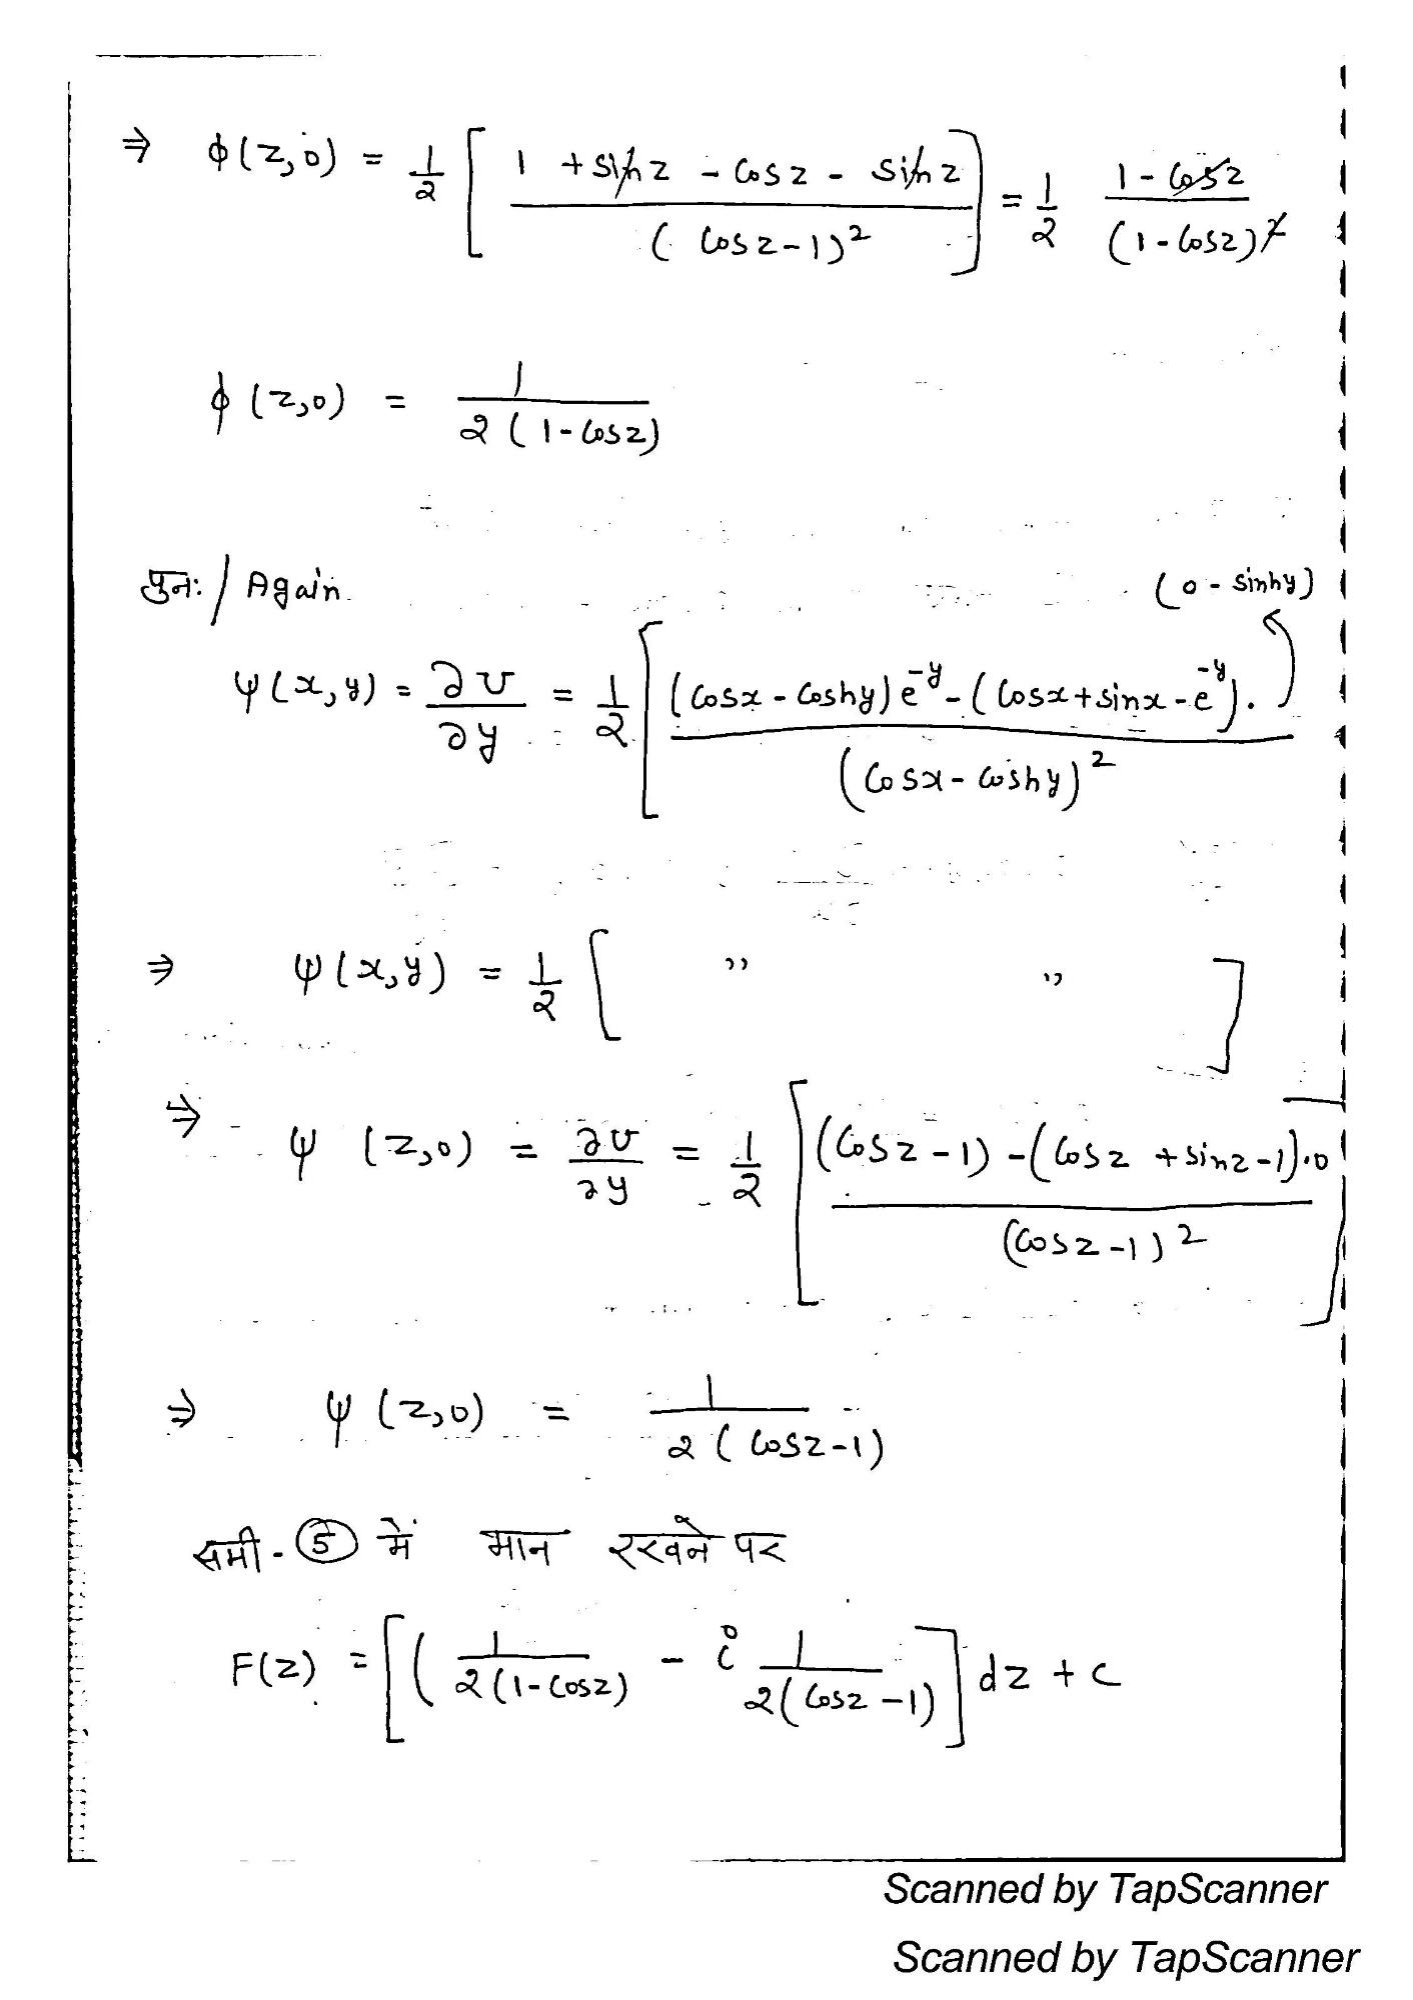 ⇒ ϕ(z,0) = 1/2 [ (1 + sin z - cos z - sin z) / (cos z - 1)² ] = 1/2 (1 - cos z) / (1 - cos z)²
ϕ(z,0) = 1 / 2(1 - cos z)
पुनः / Again
(0 - sinhy)
ψ(x,y) = ∂v/∂y = 1/2 [ (cosx - coshy) e^-y - (cosx + sinx - e^-y). / (cosx - coshy)²
⇒ ψ(x,y) = 1/2 [ " " ]
⇒ ψ(z,0) = ∂v/∂y = 1/2 [ (cos z - 1) - (cos z + sin z - 1).0 / (cos z - 1)² ]
⇒ ψ(z,0) = 1 / 2(cos z - 1)
समी - ⑤ में मान रखने पर
F(z) = [ ( 1 / 2(1 - cos z) - i 1 / 2(cos z - 1) ] dz + c
Scanned by TapScanner
Scanned by TapScanner